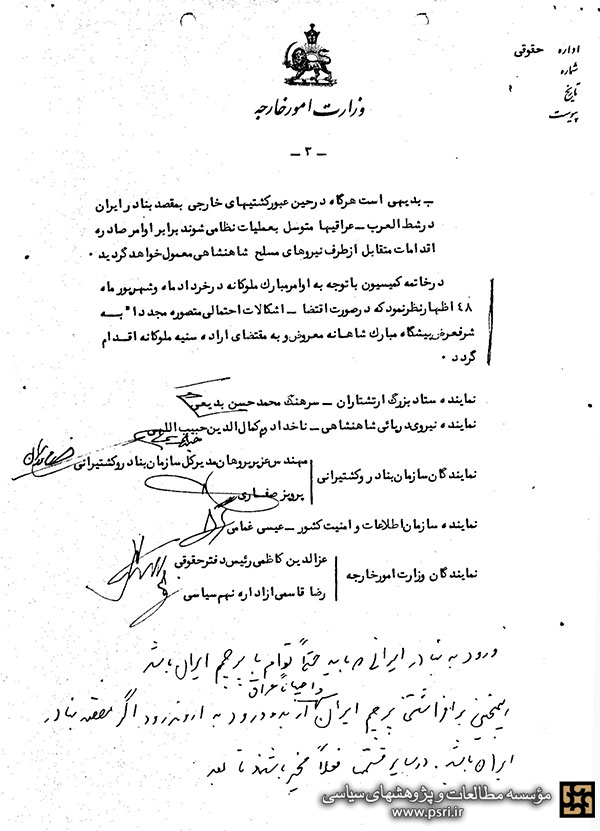 اداره حقوقی
شماره
تاریخ
پیوست
وزارت امور خارجه
ـ ۳ ـ
ـ بدیهی است هرگاه درحین عبورکشتیهای خارجی بمقصد بنادر ایران
درشط العرب ـ عراقیها متوسل بعملیات نظامی شوند برابر اوامر صادره
اقدامات متقابل ازطرف نیروهای مسلح شاهنشاهی معمول خواهد گردید ۰
درخاتمه کمیسیون با توجه به اوامر مبارك ملوکانه درخرداد ماه وشهریور ماه
٤٨ اظهارنظرنمود که درصورت اقتضا ـ اشکالات احتمالی متصوره مجددا" بـه
شرفعرض پیشگاه مبارك شاهانه معروض و به مقتضای اراده سنیه ملوکانه اقـدام
گردد ۰
نماینده ستاد بزرگ ارتشتاران ـ سرهنگ محمد حسن بدیعی
نماینده نیروی دریائی شاهنشاهی ـ ناخدا دوم کمال الدین حبیب اللهی
نمایندگان سازمان بنادر وکشتیرانی
مهندس عزیز پروهان مدیرکل سازمان بنادر وکشتیرانی
پرویز صفاری
نماینده سازمان اطلاعات و امنیت کشور ـ عیسی غمامی
نمایندگان وزارت امور خارجه
عزالدین کاظمی رئیس دفتر حقوقی
رضا قاسمی از اداره نهم سیاسی
ورود به بنادر ایرانی باید حتماً توأم با پرچم ایران باشد
و احیاناً عراق
همچنین برافراشتن پرچم ایران از بدو ورود به اروندرود اگر مقصد بنادر
ایران باشد. در سایر قسمت فعلاً مخیر باشند تا بعد
مؤسسه مطالعات و پژوهشهای سیاسی
www.psri.ir